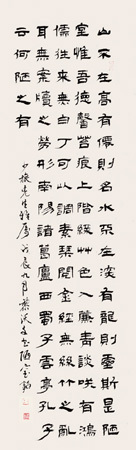 山不在高有僊則名水不在深有龍則靈斯是陋
室惟吾德馨苔痕上階綠草色入簾青談咲有鴻
儒往來無白丁可以調素琴閱金經無絲竹之亂
耳無案牘之勞形南陽諸葛廬西蜀子雲亭孔子
云何陋之有
先生雅屬 辰九月 書陋室銘